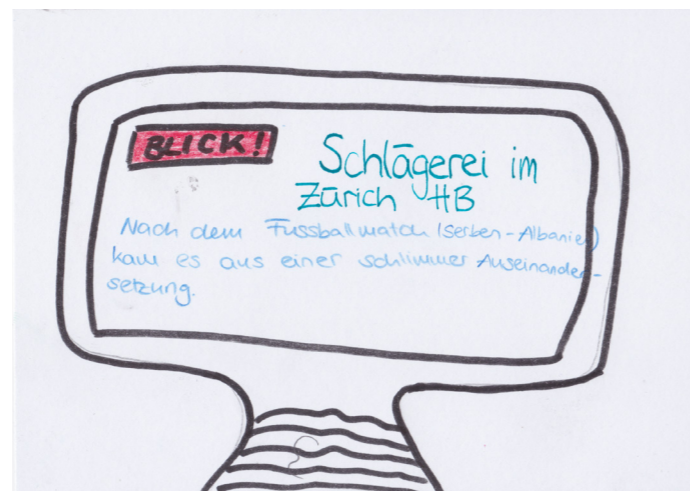 BLICK!
Schlägerei im
Zürich HB
Nach dem Fussballmatch (Serben-Albanien)
kam es aus einer schlimmer Auseinander-
setzung.